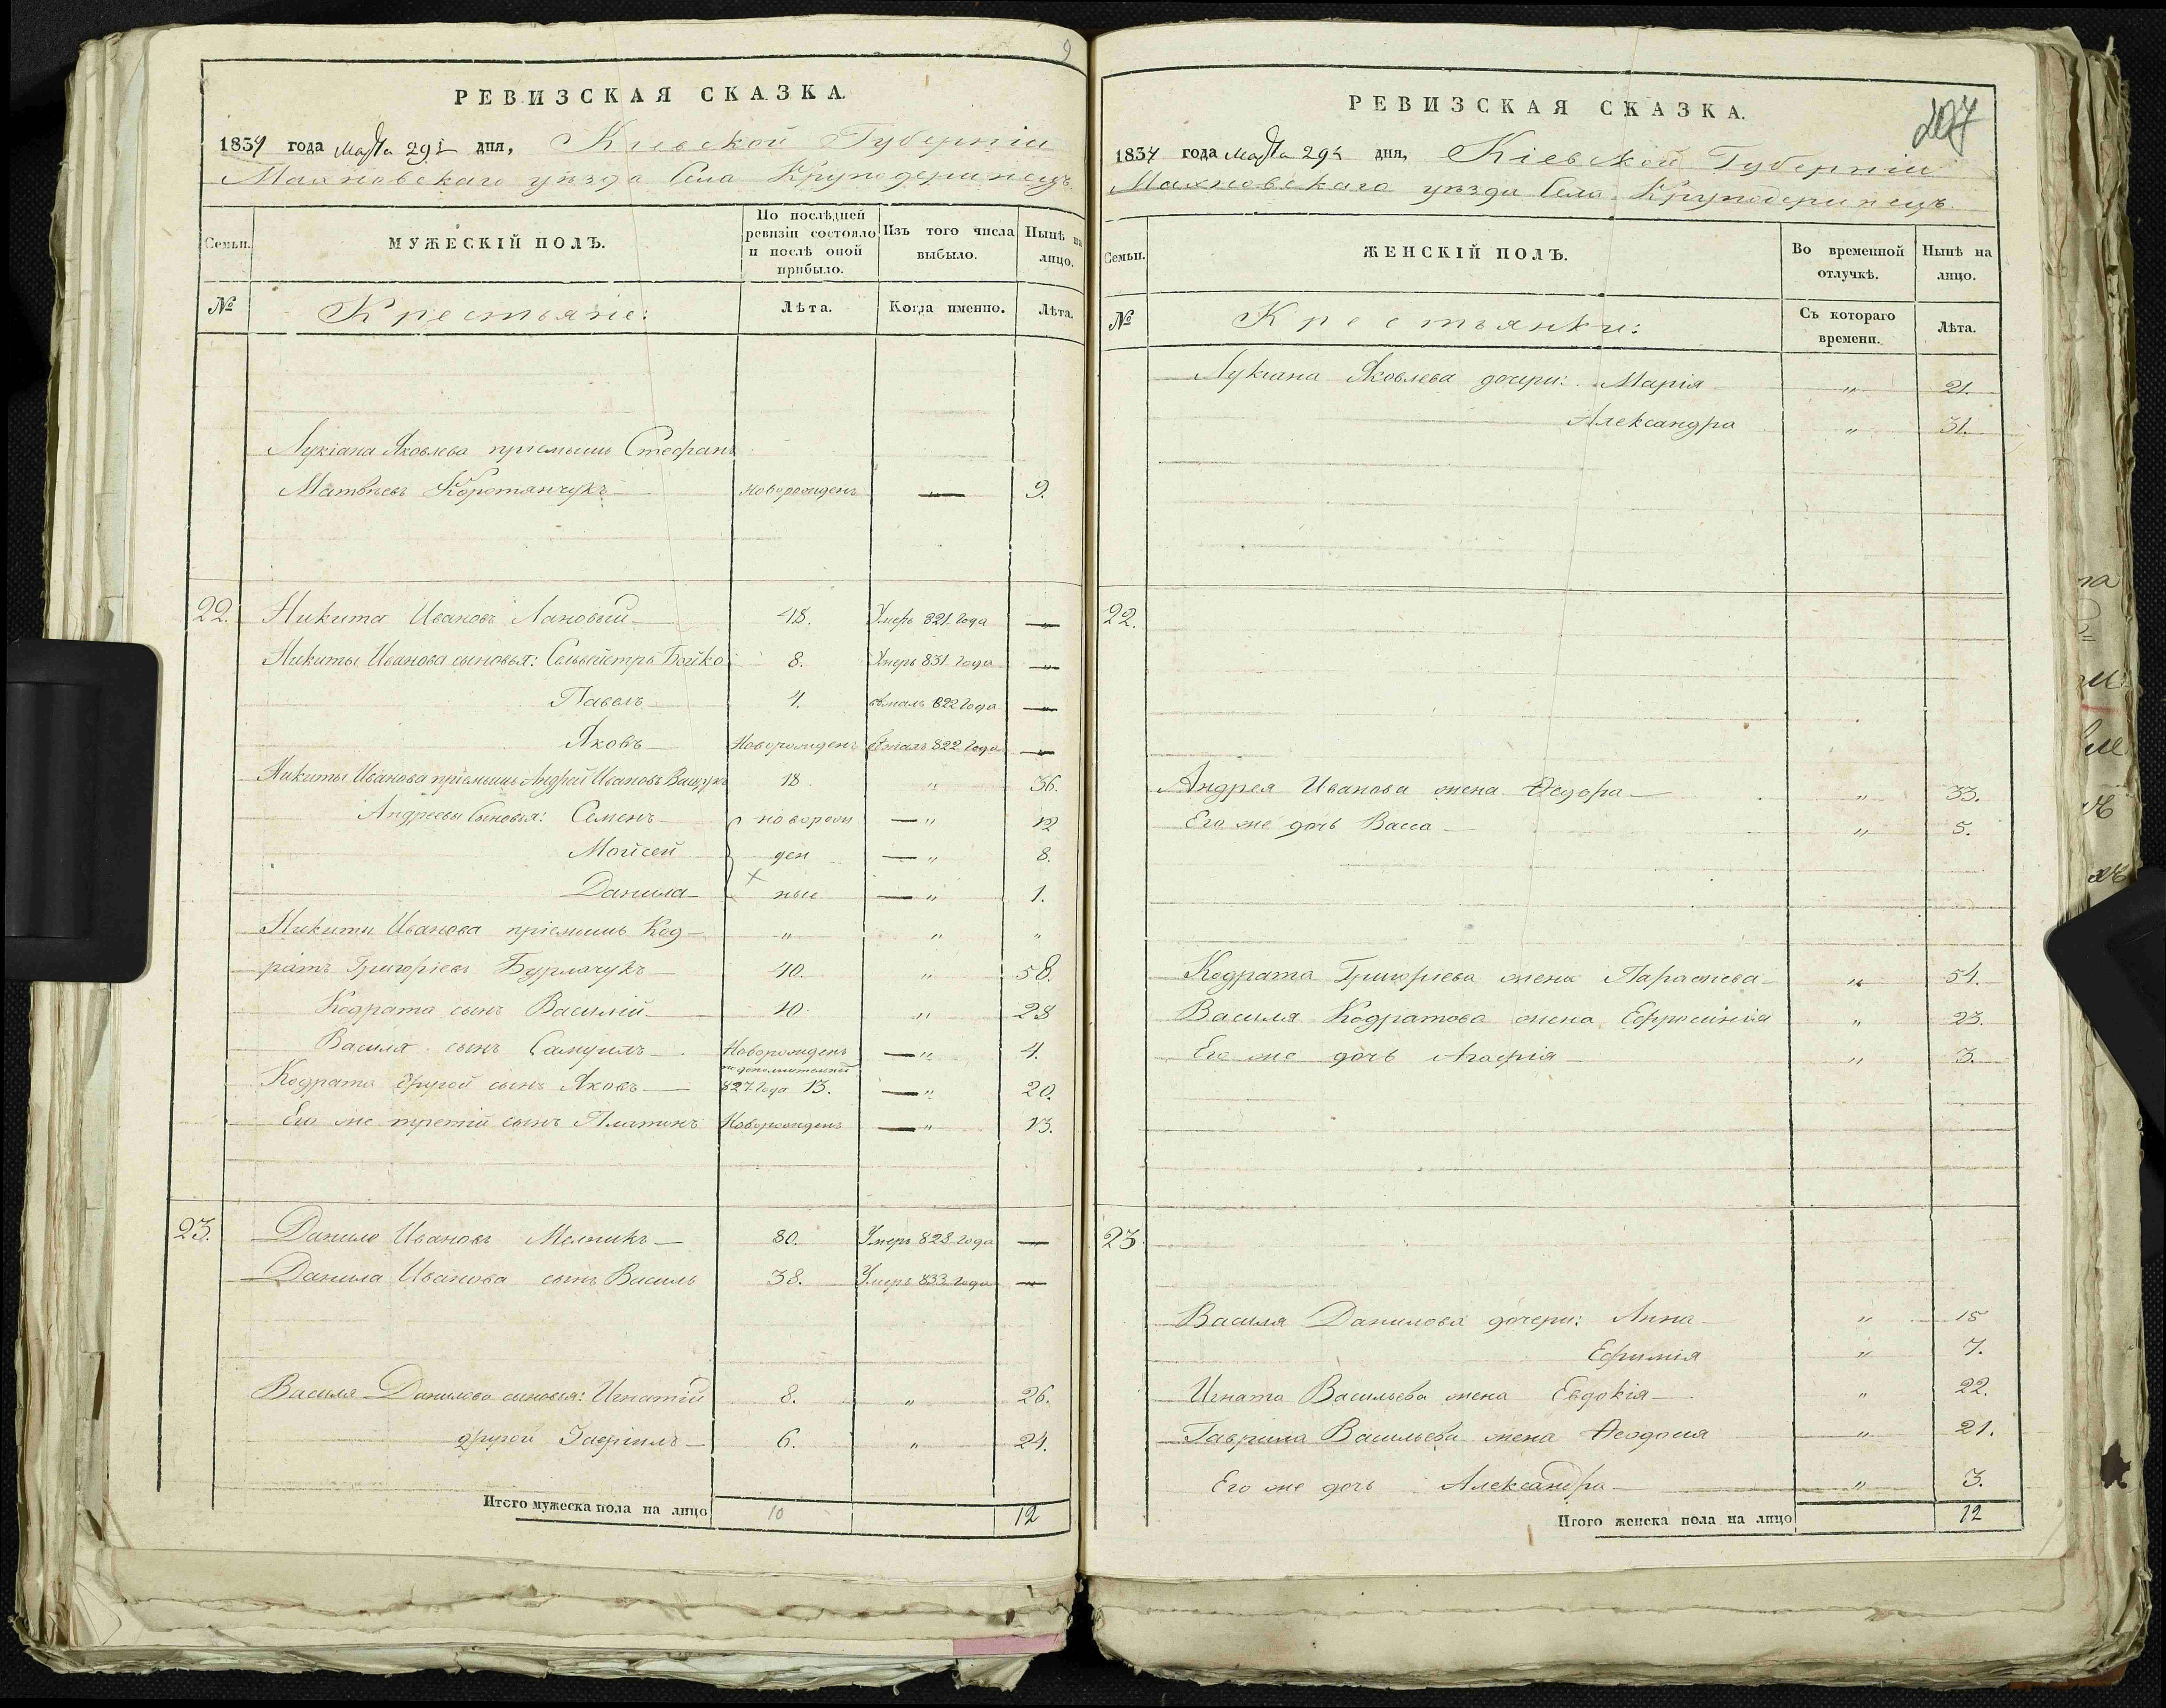 9
РЕВИЗСКАЯ СКАЗКА.
1834 года Марта 29 дня, Киевской Губерніи
Махновскаго уѣзда Села Круподеринецъ
Семьи.
МУЖЕСКІЙ ПОЛЪ.
По послѣдней ревизіи состояло и послѣ оной прибыло.
Изъ того числа выбыло.
Нынѣ на лицо.
№
Крестьяне:
Лѣта.
Когда именно.
Лѣта.
Лукіана Яковлева пріемышъ Стефанъ
Матвѣевъ Коротянчукъ новорожденъ — 9.
22. Никита Ивановъ Лановый 48. Умеръ 821 года —
Никиты Иванова сыновья: Сильвейстръ Бойко 8. Умеръ 831 года —
Павелъ 4. бѣжалъ 822 года —
Яковъ Новорожденъ бѣжалъ 822 года —
Никиты Иванова пріемышъ Андрей Ивановъ 18 " 36.
Андреевы сыновья: Семенъ новорож — " 12
Мойсей ден — " 8.
Данила ные — " 1.
Никиты Иванова пріемышъ Код- " " "
ратъ Григоріевъ Бурлачукъ 40. " 58.
Кодрата сынъ Василій 10. " 28
Василя сынъ Самуилъ Новорожденъ — " 4.
по дополнительной
Кодрата другой сынъ Яковъ 827 года 13. — " 20.
Его же третій сынъ Платонъ Новорожденъ — " 13.
23. Данило Ивановъ Мельникъ 80. Умеръ 828 года —
Данила Иванова сынъ Василь 38. Умеръ 833 года —
Василя Данилова сыновья: Игнатій 8. " 26.
другой Гавріилъ 6. " 24.
Итого мужеска пола на лицо 10 12
207
РЕВИЗСКАЯ СКАЗКА.
1834 года Марта 29 дня, Кіевской Губерніи
Махновскаго уѣзда Села Круподеринецъ
Семьи.
ЖЕНСКІЙ ПОЛЪ.
Во временной отлучкѣ.
Нынѣ на лицо.
№
Крестьянки:
Съ котораго времени.
Лѣта.
Лукіана Яковлева дочери: Марія " 21.
Александра " 31.
22.
Андрея Иванова жена Ѳедора " 33.
Его же дочь Васса " 5.
Кодрата Григорьева жена Параскева " 54.
Василя Кодратова жена Ефросинія " 23.
Его же дочь Агафія " 3.
23
Василя Данилова дочери: Анна " 15
Ефимія " 7.
Игната Васильева жена Евдокія " 22.
Гаврила Васильева жена Ѳеодосія " 21.
Его же дочь Александра " 3.
Итого женска пола на лицо 12